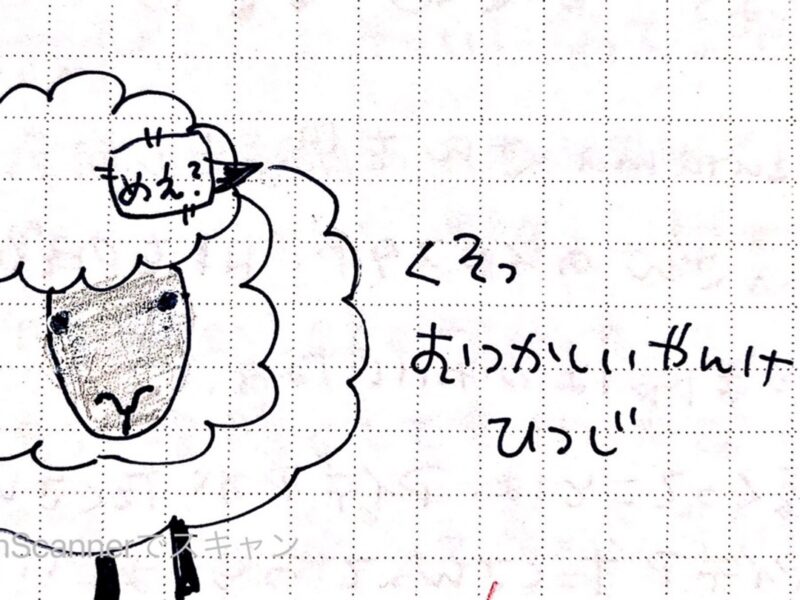 めえ?
くそっ
おつかしいやんけ
ひつじ
nScannerでスキャン